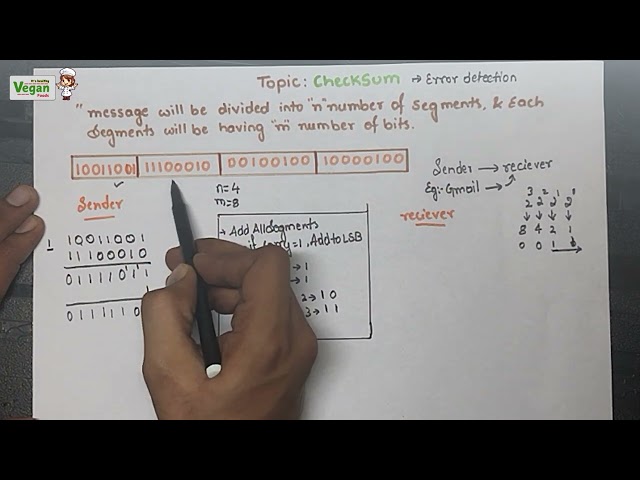 It's Healthy
Vegan
Foods
Topic: CheckSum → Error detection
" message will be divided into "n" number of segments, & Each
segments will be having "m" number of bits.
10011001 11100010 00100100 10000100
n=4
m=8
Sender → reciever
Eg:- Gmail →
Sender
reciever
3 2 1
2 2 2 2
↓ ↓ ↓ ↓
8 4 2 1
0 0 1
→ Add All segments
=1, Add to LSB
→ 1
→ 1
2 → 1 0
3 → 1 1
1 10011001
11100010
01111011
1
0111110